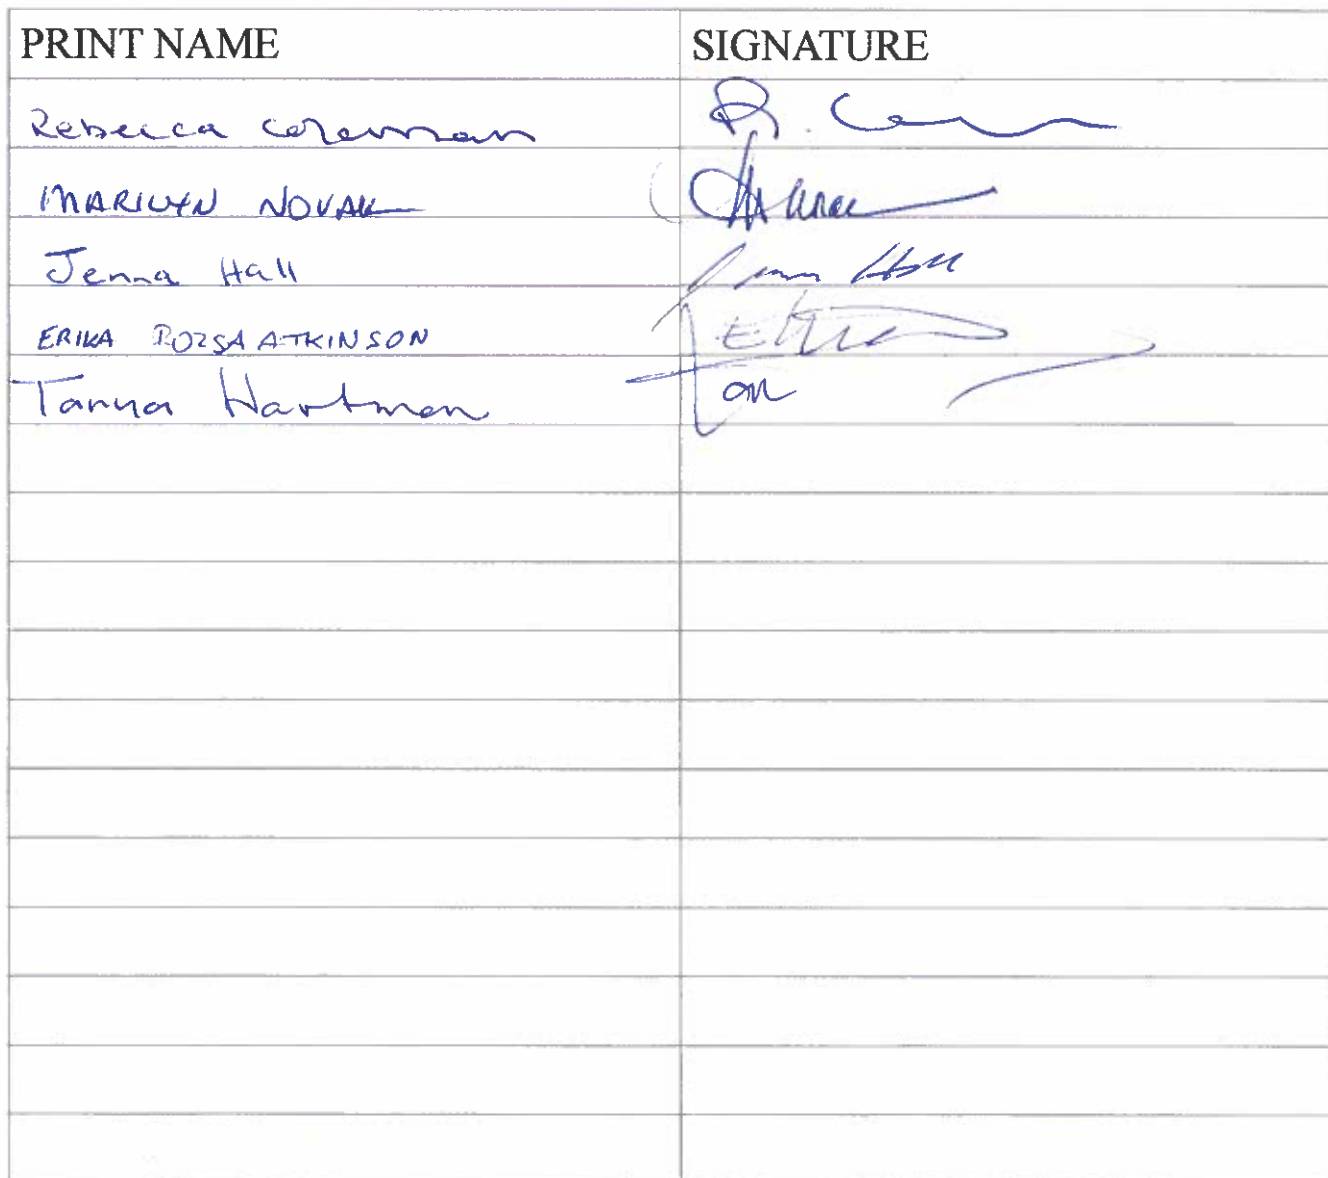 PRINT NAME SIGNATURE
Rebecca Coleman R.
MARILYN NOVAK
Jenna Hall Hall
ERIKA ROZSA ATKINSON E
Tanya Hartman